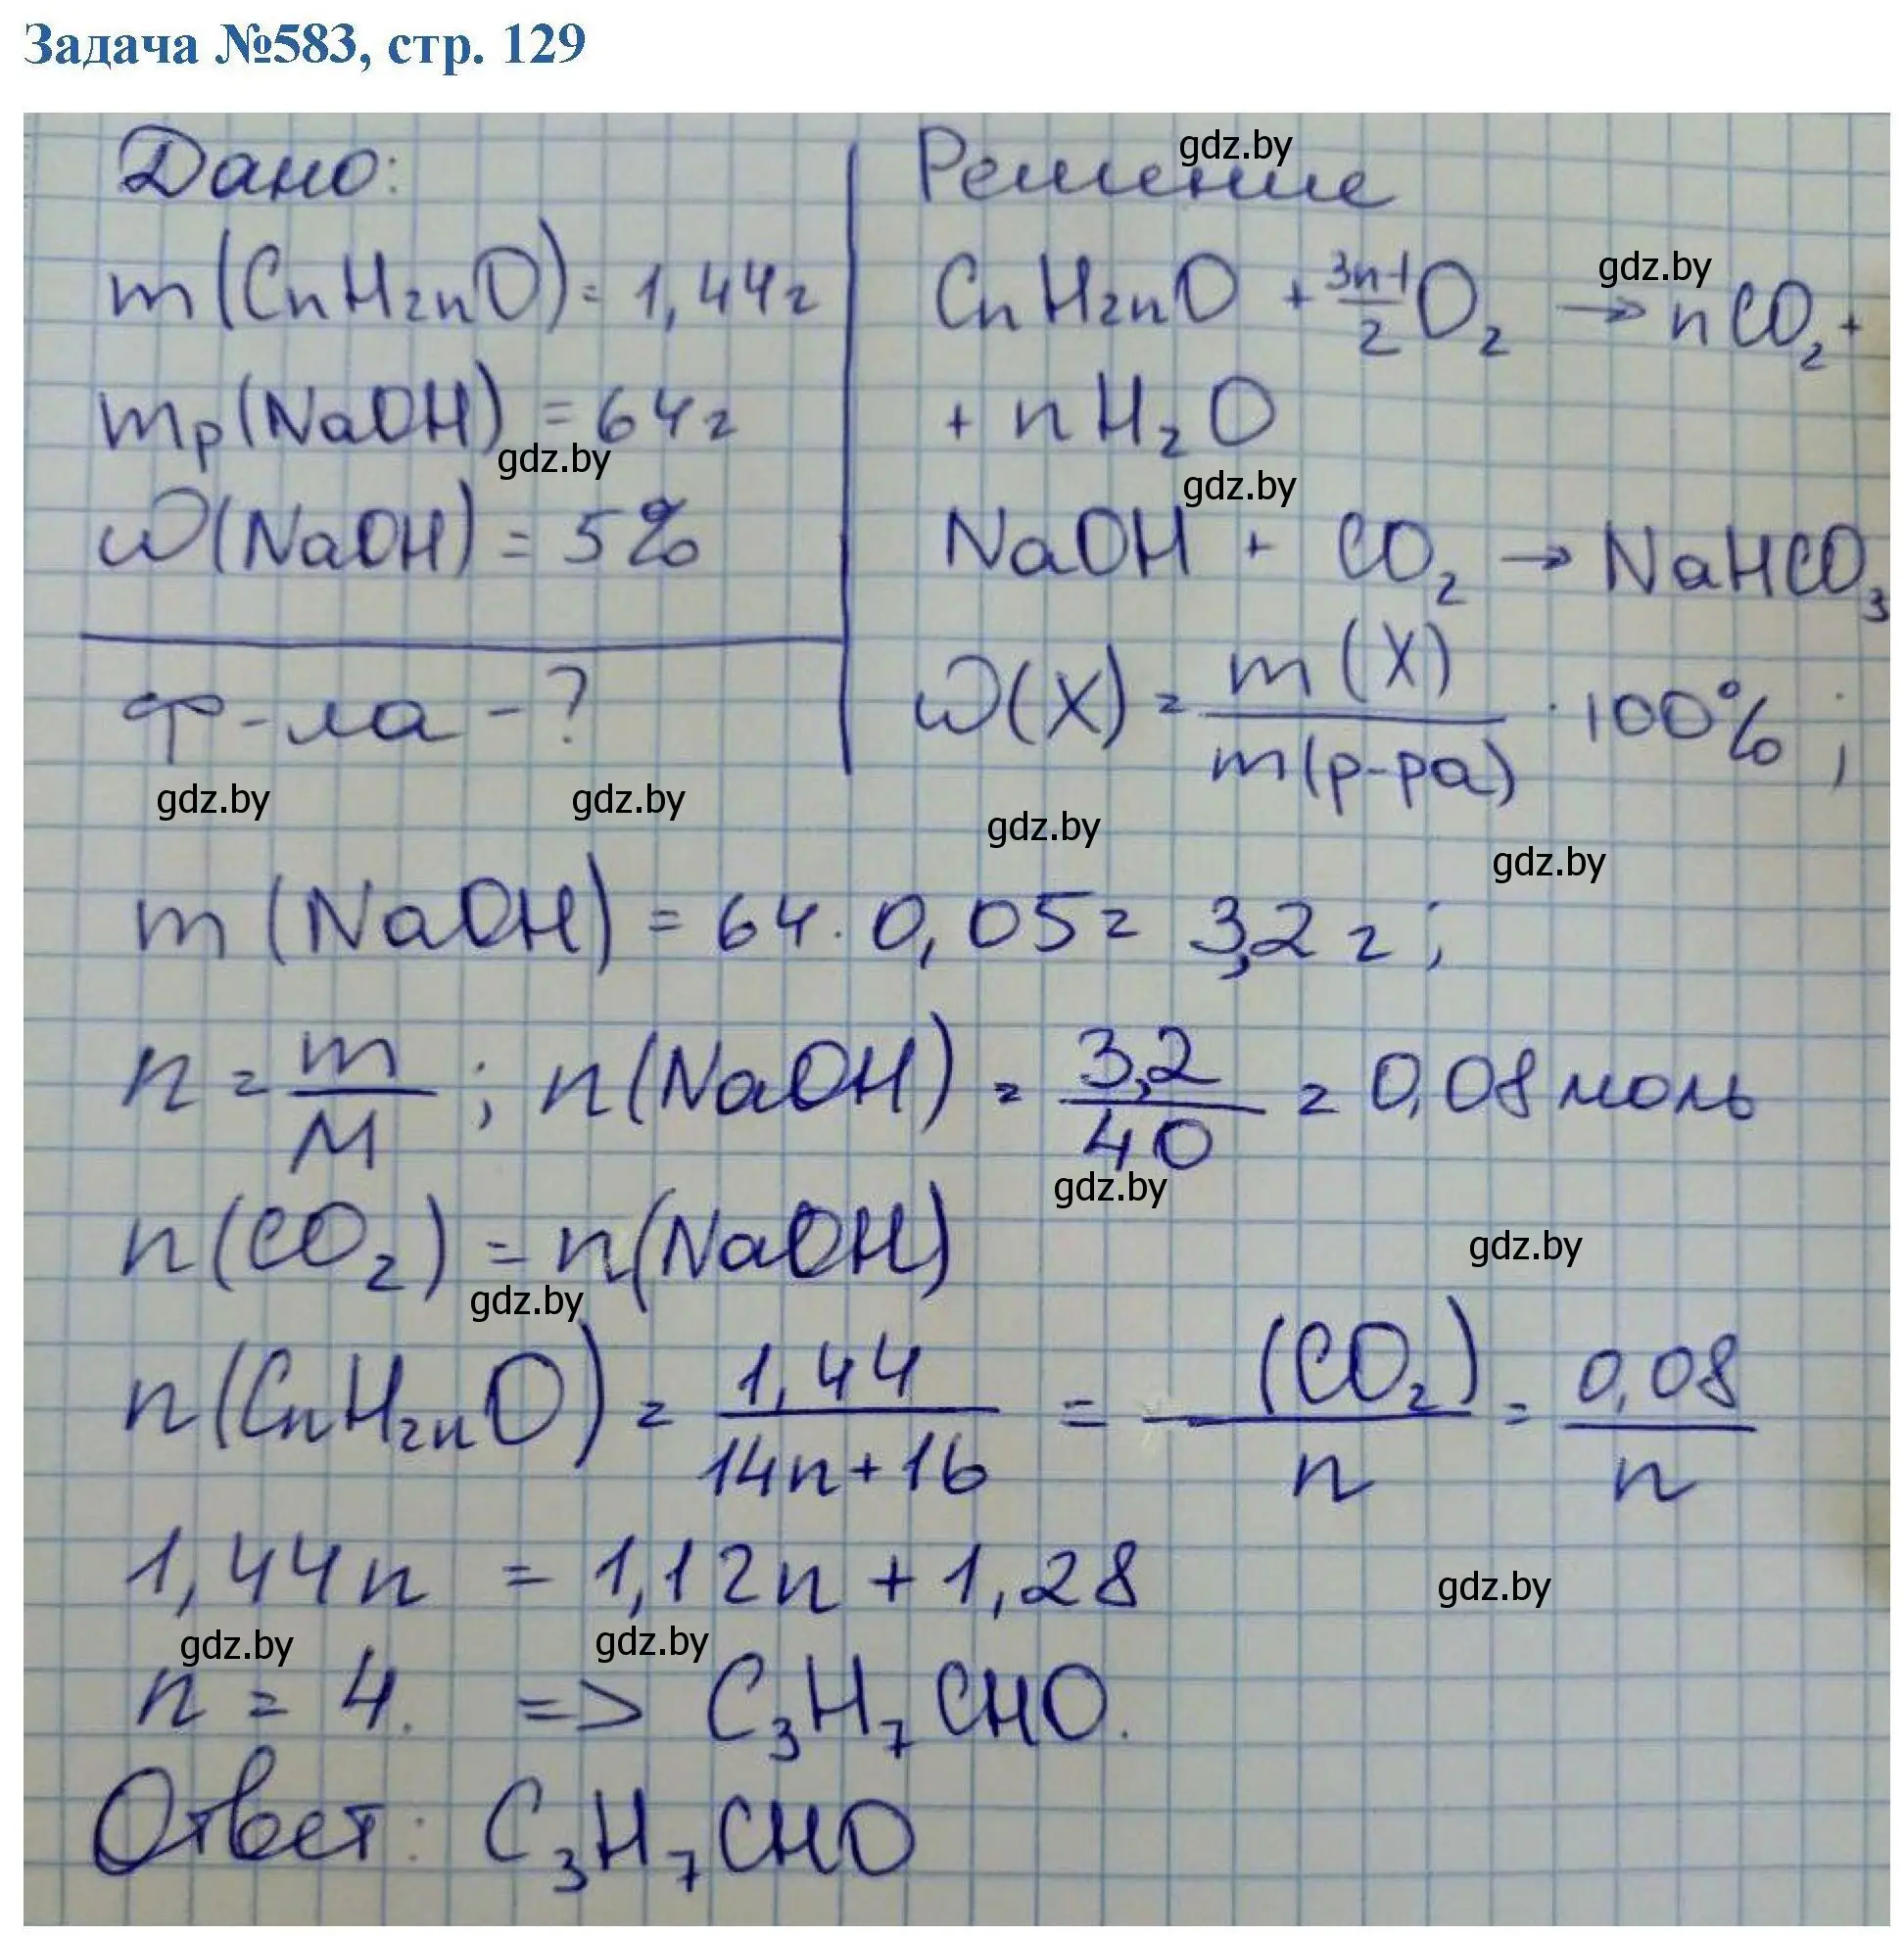 Задача №583, стр. 129
Дано:
m(CnH2nO) = 1,44г
mр(NaOH) = 64г
ω(NaOH) = 5%
ф-ла - ?
Решение
CnH2nO + 3n-1/2 O2 → nCO2 +
+ nH2O
NaOH + CO2 → NaHCO3
ω(X) = m(X)/m(р-ра) · 100% ;
m(NaOH) = 64 · 0,05 = 3,2 г ;
n = m/M ; n(NaOH) = 3,2/40 = 0,08 моль
n(CO2) = n(NaOH)
n(CnH2nO) = 1,44/14n+16 = (CO2)/n = 0,08/n
1,44n = 1,12n + 1,28
n = 4. => C3H7CHO.
Ответ: C3H7CHO
gdz.by
gdz.by
gdz.by
gdz.by
gdz.by
gdz.by
gdz.by
gdz.by
gdz.by
gdz.by
gdz.by
gdz.by
gdz.by
gdz.by